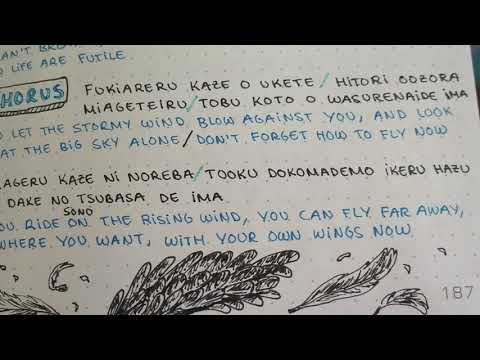 AN'T BRO
O LIFE ARE FUTILE.
HORUS FUKIARERU KAZE O UKETE/HITORI OOZORA
MIAGETEIRU/TOBU KOTO O WASURENAIDE IMA
O LET THE STORMY WIND BLOW AGAINST YOU, AND LOOK
AT THE BIG SKY ALONE/DON'T FORGET HOW TO FLY NOW
AGERU KAZE NI NOREBA/TOOKU DOKOMADEMO IKERU HAZU
DAKE NO TSUBASA DE IMA
SONO
OU RIDE ON THE RISING WIND, YOU CAN FLY FAR AWAY,
WHERE YOU WANT, WITH YOUR OWN WINGS NOW
187